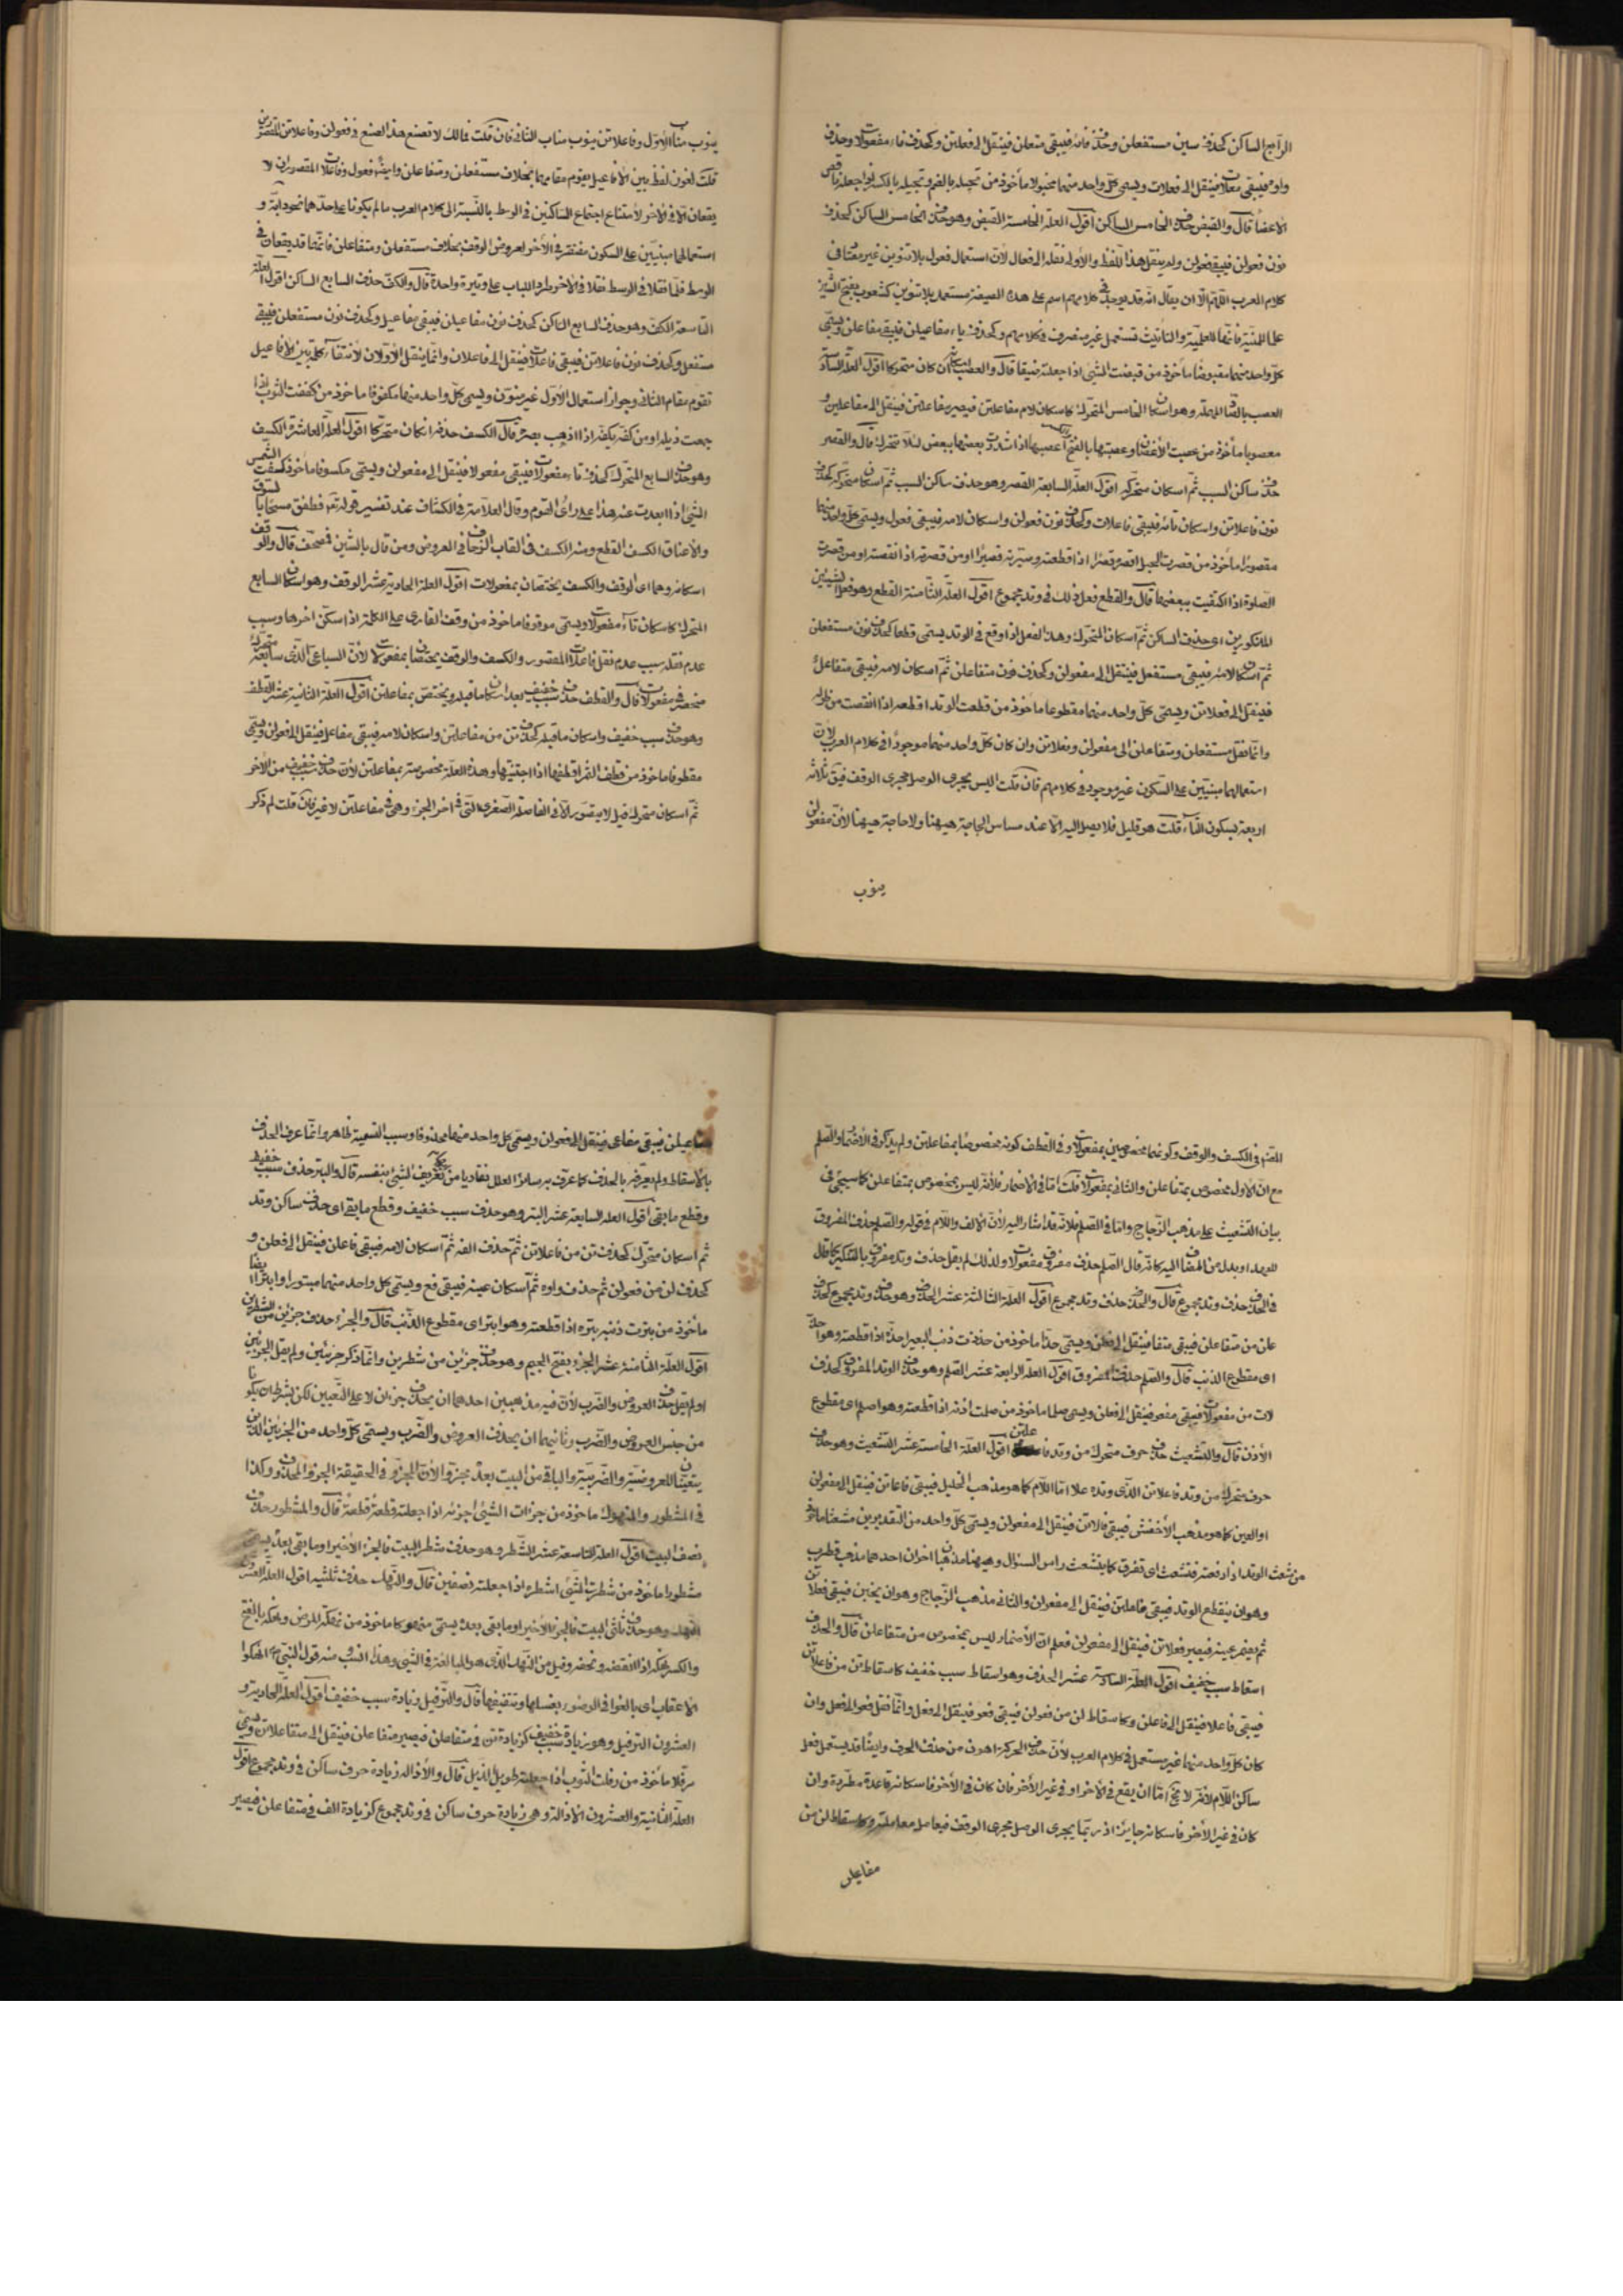 الرابع الساكن كحذف سين مستفعلن وحذف فائه فيبقى متعلن فينقل الى فعلتن وكحذف فاء مفعولات وحذف
واوه فيبقى معلات فينقل الى فعلات ويسمى كل واحد منهما مخبولا مأخوذ من
الاعضا قال والقبض حذف الخامس الساكن اقول العلة الخامسة القبض وهو حذف الخامس الساكن كحذف
نون فعولن فيبقى فعول ولم ينقل هذا اللفظ والأولى نقله الى فعال لأن استعمال فعول بلا تنوين غير معتاد في
كلام العرب اللهم الا ان يقال انه قد يوجد في كلامهم اسم على هذه الصيغة مستعمل بلا تنوين كشعوب بفتح الشين
علما للمنية فانها للعلمية والتانيث تستعمل غير منصرف في كلامهم وكحذف ياء مفاعيلن فيبقى مفاعلن ويسمى
كل واحد منهما مقبوضا مأخوذ من قبضت الشئ اذا جعلته ضيقا قال والعصب اسكانه ان كان متحركا اقول العلة السادسة
العصب بالصاد المهملة وهو اسكان الخامس المتحرك كاسكان لام مفاعلتن فيصير مفاعلتن فينقل الى مفاعيلن و
معصوبا مأخوذ من عصبت الأغصان وعصبتها بالفتح اعصبها اذا شددت بعضها ببعض لئلا تتحرك قال والقصر
حذف ساكن السبب ثم اسكان متحركه اقول العلة السابعة القصر وهو حذف ساكن السبب ثم اسكان متحركه كحذف
نون فاعلاتن واسكان تائه فيبقى فاعلات وكحذف نون فعولن واسكان لامه فيبقى فعول ويسمى كل واحد منهما
مقصورا مأخوذ من قصرت الحبل اقصره قصرا اذا قطعته وصيرته قصيرا او من قصرته اذا انقصته او من قصرت
الصلوة اذا اكتفيت ببعضها قال والقطع فعل ذلك في وتد مجموع اقول العلة الثامنة القطع وهو فعل الشيئين
المذكورين اى حذف الساكن ثم اسكان المتحرك وهذا الفعل اذا وقع في الوتد يسمى قطعا كحذف نون مستفعلن
ثم اسكان لامه فيبقى مستفعل فينتقل الى مفعولن وكحذف نون متفاعلن ثم اسكان لامه فيبقى متفاعل
فينقل الى فعلاتن ويسمى كل واحد منهما مقطوعا مأخوذ من قطعت الوتد اقطعه اذا انقصت من طوله
وانما نقل مستفعلن ومتفاعلن الى مفعولن وفعلاتن وان كان كل واحد منهما موجودا في كلام العرب لأن
استعمالهما مبنيين على السكون غير موجود في كلامهم فان قلت اليس يجرى الوصل مجرى الوقف فيق ثلاثه
اربعة بسكون الثاء قلت هو قليل فلا يصار اليه الا عند مساس الحاجة هيهنا ولا حاجة هيهنا لأن مفعولن
ينوب
ينوب مناب الأول وفاعلاتن ينوب مناب الثانى فان قلت فما لك لا تصنع هذا الصنع في فعولن وفاعلاتن المقصورين
قلت لعون لفظ بين الأفاعيل يقوم مقامهما بخلاف مستفعلن ومتفاعلن وايضا فعول وفاعلات المقصوران لا
يقعان الا في الآخر لامتناع اجتماع الساكنين في الوسط بالنسبة الى كلام العرب ما لم يكونا على حدهما نحو دابة و
استعمالهما مبنيين على السكون مفتقر في الآخر لعروض الوقف بخلاف مستفعلن ومتفاعلن فانهما قد يقعان في
الوسط فلما نقلا في الوسط نقلا في الآخر طردا للباب على وتيرة واحدة قال والكف حذف السابع الساكن اقول العلة
التاسعة الكف وهو حذف السابع الساكن كحذف نون مفاعيلن فيبقى مفاعيل وكحذف نون مستفعلن فيبقى
مستفعل وكحذف نون فاعلاتن فيبقى فاعلات فينقل الى فاعلان وانما ينقل الأولان لانتفاء كلمة بين الأفاعيل
تقوم مقام الثانى وجواز استعمال الأول غير منون ويسمى كل واحد منهما مكفوفا ماخوذ من كففت الثوب اذا
جمعت ذيله او من كف يكف اذا ذهب بصره قال الكسف حذفه ان كان متحركا اقول العلة العاشرة الكسف
وهو حذف السابع المتحرك كحذف تاء مفعولات فيبقى مفعولا فينقل الى مفعولن ويسمى مكسوفا مأخوذ كسفت الشمس
الشئ اذا ابعدت عنه هذا على رأى القوم وقال العلامة في الكشاف عند تفسير قوله تع فطفق مسحا بالسوق
والاعناق الكسف القطع ومنه الكسف في القاب الزحاف في العروض ومن قال بالشين فمصحف قال والوقف
اسكانه وهما اى الوقف والكسف يختصان بمفعولات اقول العلة الحادية عشر الوقف وهو اسكان السابع
المتحرك كاسكان تاء مفعولات ويسمى موقوفا ماخوذ من وقف القارى على الكلمة اذا سكن آخرها وسبب
عدم نقله سبب عدم نقل فاعلات المقصور والكسف والوقف يختصان بمفعولات لأن السباعى الذى سابعه متحرك
منحصر في مفعولات قال والقطف حذف سبب خفيف بعد اسكان ما قبله ويختص بمفاعلتن اقول العلة الثانية عشر القطف
وهو حذف سبب خفيف واسكان ما قبله كحذف تن من مفاعلتن واسكان لامه فيبقى مفاعل فينقل الى فعولن ويسمى
مقطوفا ماخوذ من قطف الثمر اقطفها اذا اجتنيتها وهذه العلة مخصوصة بمفاعلتن لأن حذف سبب خفيف من الآخر
ثم اسكان متحرك قبل لا يتصور الا في الفاصلة الصغرى التى في آخر الجزء وهى في مفاعلتن لا غير فان قلت لم ذكر
المقدم في الكسف والوقف وكونهما مخصوصين بمفعولات وفي القطف كونه مخصوصا بمفاعلتن ولم يذكر في الأضمار والصلم
مع ان الأول مخصوص بمتفاعلن والثانى بمفعولات قلت اما في الأضمار فلأنه ليس بمخصوص بمتفاعلن كما سيجئ في
بيان التشعيث على مذهب الزجاج واما في الصلم فلانه قد اشار اليه لأن الألف واللام في قوله والصلم حذف المفروق
للعهد او بدل من المضاف اليه كانه قال الصلم حذف مفروق مفعولات ولذلك لم يقل حذف وتد مفروق بالتنكير كما قال
في الحذذ حذف وتد مجموع قال والحذذ حذف وتد مجموع اقول العلة الثالثة عشر الحذذ وهو حذف وتد مجموع كحذف
علن من متفاعلن فيبقى متفا فينقل الى فعلن ويسمى حذا ماخوذ من حذذت ذنب البعير احذه اذا قطعته وهو احذ
اى مقطوع الذنب قال والصلم حذف المفروق اقول العلة الرابعة عشر الصلم وهو حذف الوتد المفروق كحذف
لات من مفعولات فيبقى مفعو فينقل الى فعلن ويسمى صلما ماخوذ من صلمت اذنه اذا قطعته وهو اصلم اى مقطوع
الأذن قال والتشعيث حذف حرف متحرك من وتد فاعلاتن اقول العلة الخامسة عشر التشعيث وهو حذف
حرف متحرك من وتد فاعلاتن الذى وتده علا اما اللام كما هو مذهب الخليل فيبقى فاعاتن فينقل الى مفعولن
او العين كما هو مذهب الأخفش فيبقى فالاتن فينقل الى مفعولن ويسمى كل واحد من التقديرين مشعثا ماخوذ
من شعث الوتد اذا رفعته فتشعث اى تفرق كما يتشعث راس السؤال وهيهنا مذهبان اخوان احدهما مذهب قطرب
وهو ان ينقطع الوتد فيبقى فاعلتن فينقل الى مفعولن والثانى مذهب الزجاج وهو ان يخبن فيبقى فعلاتن
ثم يضمر عينه فيصير فعلاتن فينقل الى مفعولن فعلم ان الأضمار ليس بمخصوص من متفاعلن قال والحذف
اسقاط سبب خفيف اقول العلة السادسة عشر الحذف وهو اسقاط سبب خفيف كاسقاط تن من فاعلاتن
فيبقى فاعلا فينقل الى فاعلن وكاسقاط لن من فعولن فيبقى فعو فينقل الى فعل وانما نقل فعو الى فعل وان
كان كل واحد منهما غير مستعمل في كلام العرب لأن حذف الحركة اهون من حذف الحرف وايضا قد يستعمل فعل
ساكن اللام لانه لا يخ اما ان يقع في الآخر او في غير الآخر فان كان في الآخر فاسكانه قاعدة مطردة وان
كان في غير الآخر فاسكانه جايز اذ ربما يجرى الوصل مجرى الوقف فيعامل معاملته وكاسقاط لن من
مفاعيلن
مفاعيلن فيبقى مفاعى فينقل الى فعولن ويسمى كل واحد منهما محذوفا وسبب التسمية ظاهر وانما عرف الحذف
بالأسقاط ولم يعرفه بالحذف كما عرف به سائر العلل تفاديا من تعريف الشئ بنفسه قال والبتر حذف سبب خفيف
وقطع ما بقى اقول العلة السابعة عشر البتر وهو حذف سبب خفيف وقطع ما بقى اى حذف ساكن وتد
ثم اسكان متحرك كحذف تن من فاعلاتن ثم حذف الفه ثم اسكان لامه فيبقى فاعل فينقل الى فعلن و
كحذف لن من فعولن ثم حذف واوه ثم اسكان عينه فيبقى فع ويسمى كل واحد منهما مبتورا وابترا ايضا
مأخوذ من بترت ذنبه بتره اذا قطعته وهو ابتر اى مقطوع الذنب قال والجزء حذف جزئين من الشطرين
اقول العلة الثامنة عشر الجزء بفتح الجيم وهو حذف جزئين من شطرين وانما ذكر جزئين ولم يقل الجزئين
او لم يقل حذف العروض والضرب لأن فيه مذهبين احدهما ان يحذف جزءان لا على التعيين لكن بشرط ان يكونا
من جنس العروض والضرب وثانيهما ان يحذف العروض والضرب ويسمى كل واحد من الجزئين اللذين
يتعينان للعروضية والضربية والباقى من البيت بعده مجزوا لأن المجزو في الحقيقة الجزو المحذوف وكذا
في المشطور والمنهوك ماخوذ من جزات الشئ اجزئه اذا جعلته قطعة قطعة قال والمشطور حذف
نصف البيت اقول العلة التاسعة عشر الشطر وهو حذف شطر البيت فالجزء الأخير او ما بقى بعده يسمى
مشطورا ماخوذ من شطرت الشئ اشطره اذا جعلته نصفين قال والنهك حذف ثلثيه اقول العلة العشرون
النهك وهو حذف ثلثى البيت فالجزء الأخير او ما بقى بعده يسمى منهوكا ماخوذ من نهكه المرض ونهكه بالفتح
والكسر ينهكه اذا انقضه ونحضه وقيل من النهك الذى هو المبالغة في الشئ وهذا انسب منه قول النبى ص انهكوا
الاعقاب اى بالغوا في الوضوء بغسلها وتنقيتها قال والترفيل زيادة سبب خفيف اقول العلة الحادية و
العشرون الترفيل وهو زيادة سبب خفيف كزيادة تن في متفاعلن فيصير متفاعلن فينقل الى متفاعلاتن ويسمى
مرفلا مأخوذ من رفلت الثوب اذا جعلته طويل الذيل قال والأذالة زيادة حرف ساكن في وتد مجموع اقول
العلة الثانية والعشرون الاذالة وهى زيادة حرف ساكن في وتد مجموع كزيادة الف في متفاعلن فيصير